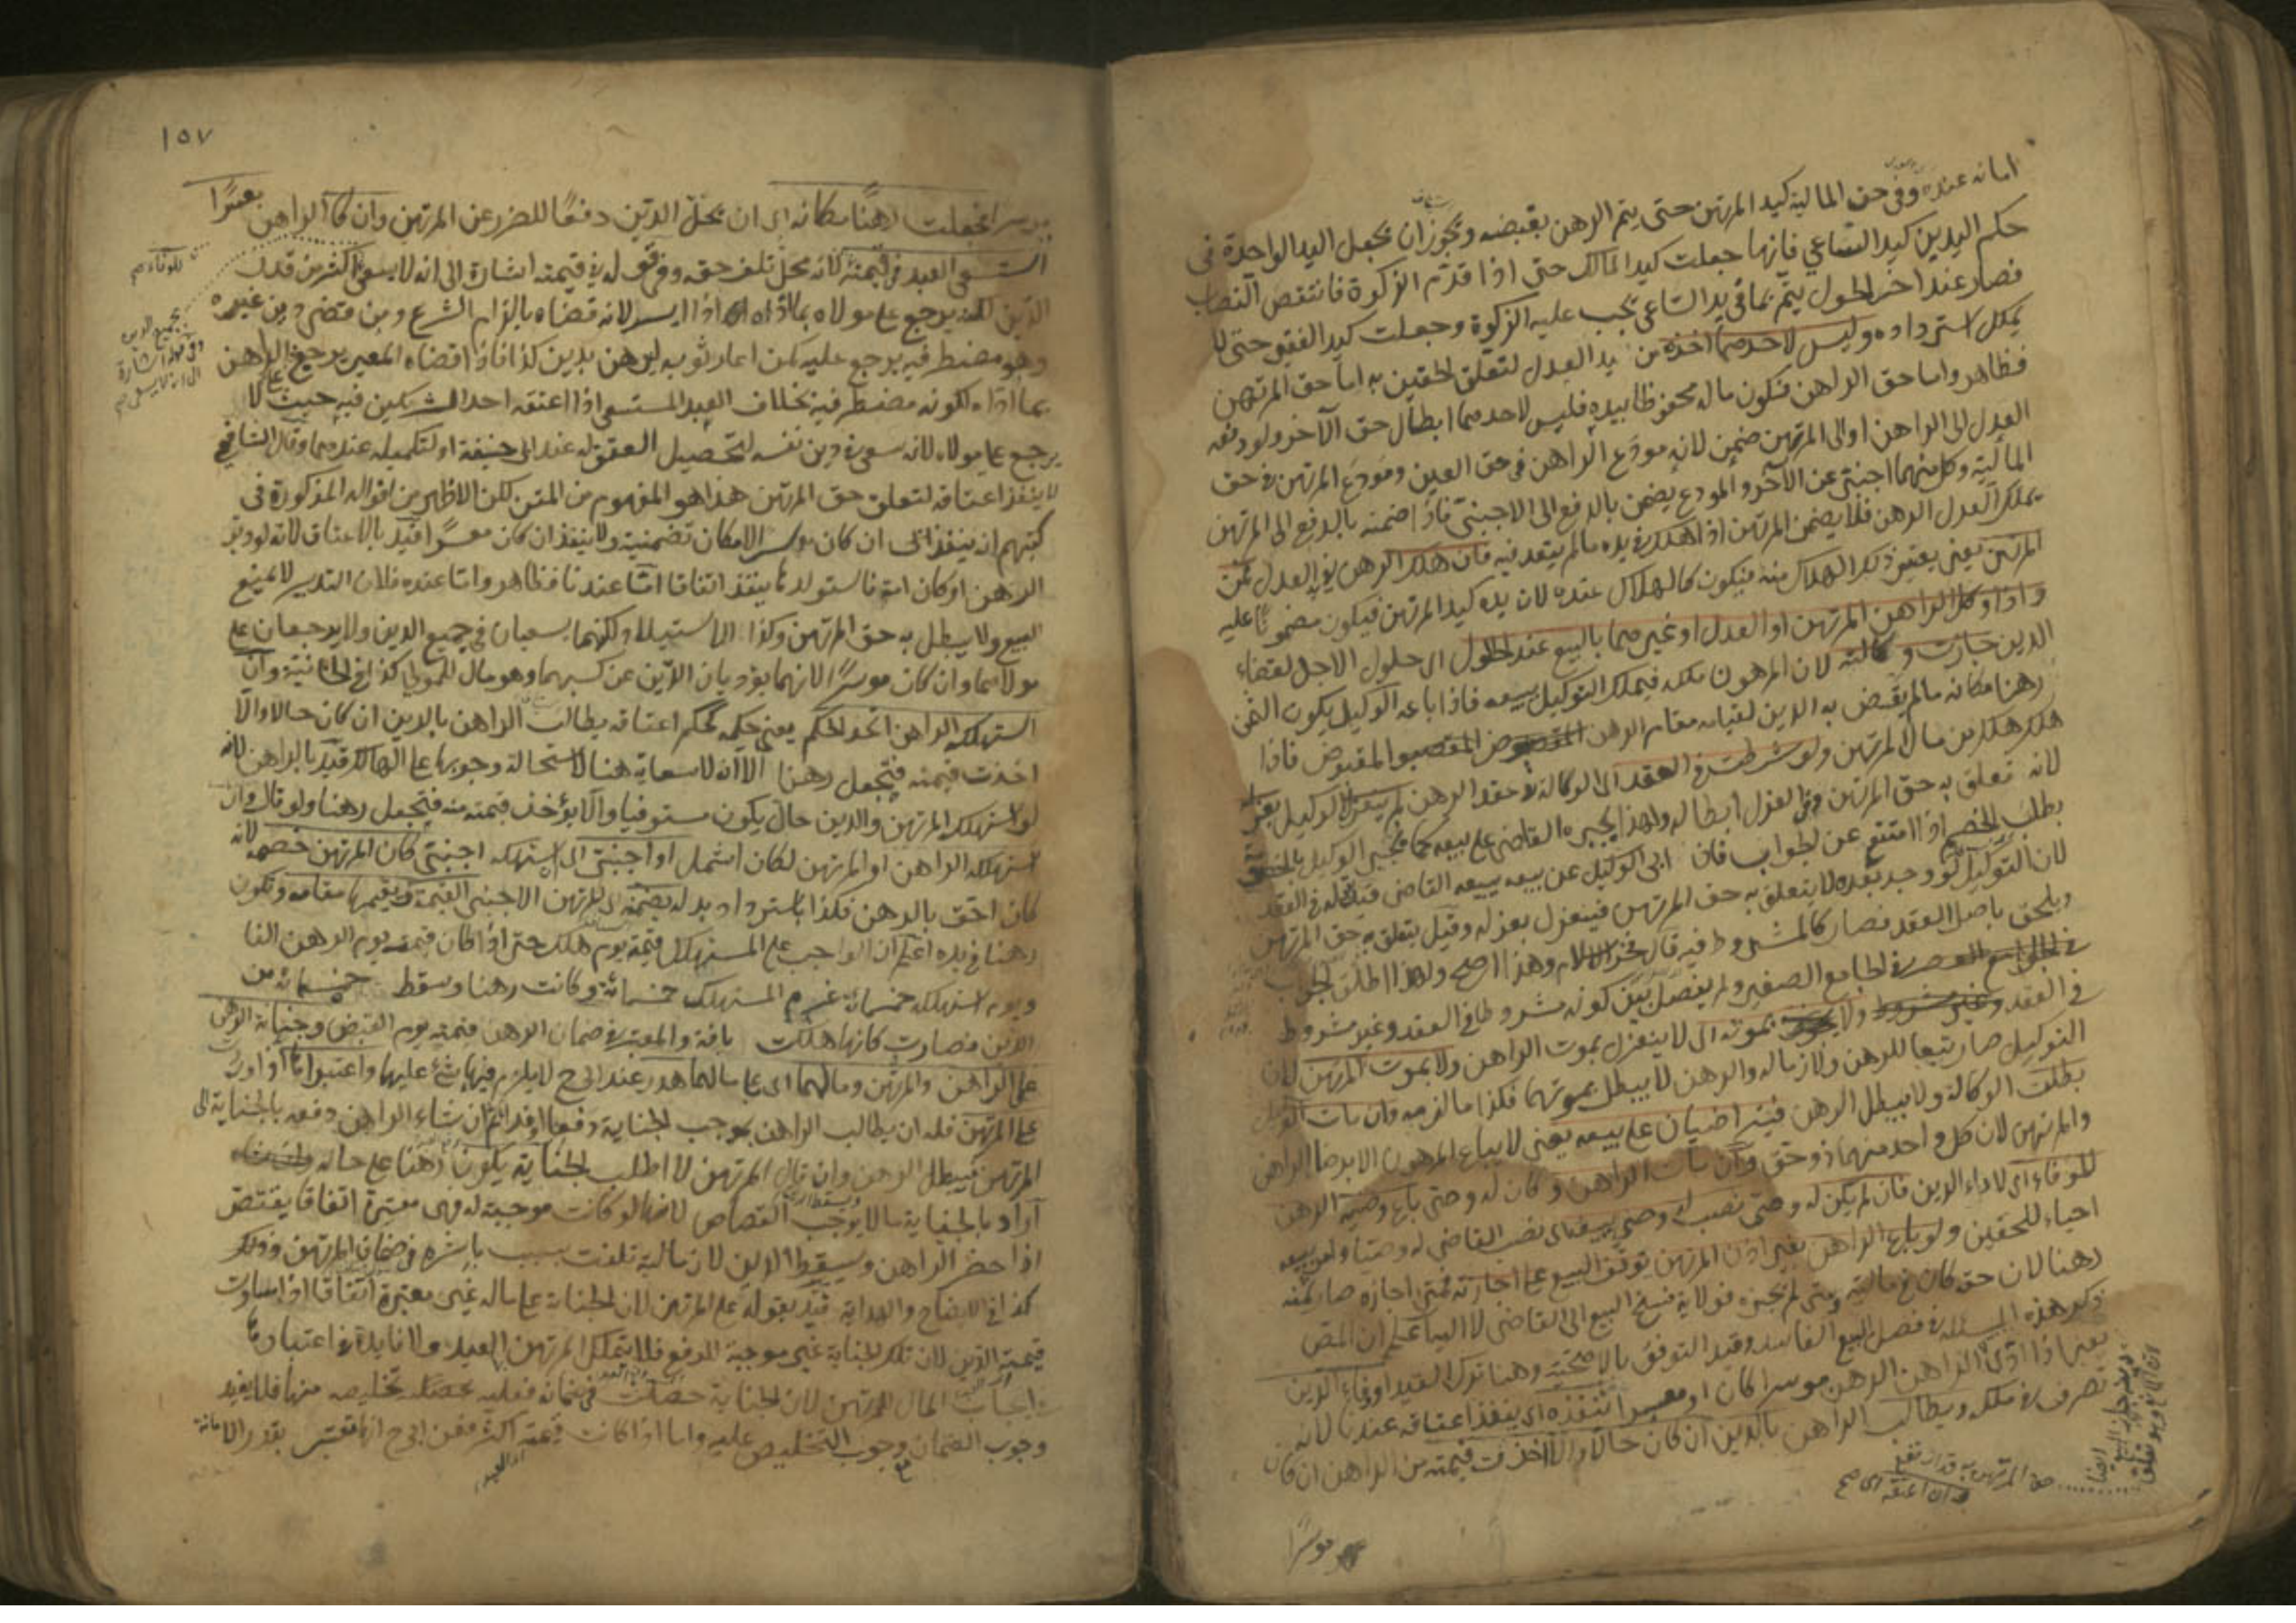 امانه عنده وفى حق المالية كيد المرتهن حتى يتم الرهن بقبضه ويجوز ان يجعل اليد الواحدة فى
حكم اليدين كيد الساعي فانها جعلت كيد المالك حتى اذا قدم الزكوة فانتقص النصاب
فصار عند اخر الحول يتم بما فى يد الساعي يجب عليه الزكوة وجعلت كيد الفقير حتى لا
يملك استرداده وليس لاحدهما اخذه من يد العدل لتعلق الحقين به اما حق المرتهن
فظاهر واما حق الراهن فتكون ماله محفوظا بيده فليس لاحدهما ابطال حق الآخر ولو دفعه
العدل الى الراهن او الى المرتهن ضمن لانه مودع الراهن فى حق العين ومودع المرتهن فى حق
المالية وكل منهما اجنبي عن الآخر والمودع يضمن بالدفع الى الاجنبي فاذا ضمنه بالدفع الى المرتهن
يملك العدل الرهن فلا يضمن المرتهن اذا هلك فى يده ما لم يتعد فيه فان هلك الرهن فى يد العدل فمن
المرتهن يعني يعتبر ذلك الهلاك منه فيكون كالهلاك عنده لان يده كيد المرتهن فيكون مضمونا عليه
واذا وكل الراهن المرتهن او العدل او غيرهما بالبيع عند الحلول اى حلول الاجل لقضاء
الدين جازت وكالته لان المرهون ملكه فيملك التوكيل ببيعه فاذا باعه الوكيل يكون الثمن
رهنا مكانه ما لم يقبض به الدين لقيامه مقام الرهن المقبوض فاذا
هلك هلك من مال المرتهن ولو شرطت فى العقد اى الوكالة فى عقد الرهن لم ينعزل الوكيل بعزله
لانه تعلق به حق المرتهن وفى العزل ابطاله ولهذا يجبره القاضي على بيعه كما يجبر الوكيل بالخصومة
بطلب الخصم اذا امتنع عن الجواب فان ابى الوكيل عن بيعه يبيعه القاضي قيد بقوله فى العقد
لان التوكيل لو وجد بعده لا يتعلق به حق المرتهن فينعزل بعزله وقيل يتعلق به حق المرتهن
ويلحق باصل العقد فصار كالمشروط فيه قال فخر الاسلام وهذا اصح ولهذا اطلق الجواب
فى الجامع الصغير ولم يفصل بين كونه مشروطا فى العقد وغير مشروط
فى العقد ولا بموته اى لا ينعزل بموت الراهن ولا بموت المرتهن لان
التوكيل صار تبعا للرهن ولازما له والرهن لا يبطل بموتهما فكذا ما لزمه وان مات الوكيل
بطلت الوكالة ولا يبطل الرهن فيتراضيان على بيعه يعني لا يباع المرهون الا برضا الراهن
والمرتهن لان كل واحد منهما ذو حق وان مات الراهن وكان له وصي باع وصيه الرهن
للوفاء اى لاداء الدين فان لم يكن له وصي نصب له وصي يبيعه اى نصب القاضي له وصيا وامر ببيعه
احياء للحقين ولو باع الراهن بغير اذن المرتهن توقف البيع على اجازته فمتى اجازه صار ثمنه
رهنا لان حقه كان فى ماليته ومتى لم يجزه فولاية فسخ البيع الى القاضي لا اليه اعلم ان المص
ذكر هذه المسئلة فى فصل البيع الفاسد وقيد التوقف بالاصحية وهنا ترك القيد او وفاء الدين
يعني اذا ادى الراهن الرهن موسرا كان او معسرا ننفذه اى ينفذ اعتاقه عندنا لانه
تصرف فى ملكه ويطالب الراهن بالدين ان كان حالا والا اخذت قيمته من الراهن ان كان
حق المرتهن به قد انتقل
وان اعتقه اى صح
موسرا
١٥٧
موسرا فجعلت رهنا مكانه اى ان يحل الدين دفعا للضرر عن المرتهن وان كان الراهن معسرا
استسعى العبد فى قيمته لانه محل تلف حقه وفى قوله فى قيمته اشارة الى انه لا يسعى اكثر من قدر
الدين لكنه يرجع على مولاه بما اداه اذا ايسر لانه قضاه بالزام الشرع ومن قضى دين غيره
وهو مضطر فيه يرجع عليه كمن اعار ثوبه ليرهن بدين كذا فاذا قضاه المعير يرجع على الراهن
بما اداه لكونه مضطر فيه بخلاف العبد المستسعى اذا اعتقه احد الشريكين فيه حيث لا
يرجع على مولاه لانه سعى فى دين نفسه لتحصيل العتق له عند ابى حنيفة او لتكميله عندهما وقال الشافعي
لا ينفذ اعتاقه لتعلق حق المرتهن هذا هو المفهوم من المتن لكن الاظهر من اقواله المذكورة فى
كتبهم انه ينفذ ان كان موسرا لامكان تضمينه ولا ينفذ ان كان معسرا قيد بالاعتاق لانه لو دبر
الرهن او كان امة فاستولدها ينفذ اتفاقا اما عندنا فظاهر واما عنده فلان التدبير لا يمنع
البيع ولا يبطل به حق المرتهن وكذا الاستيلاد ولكنهما يسعيان فى جميع الدين ولا يرجعان على
مولاهما وان كان موسرا لانهما يؤديان الدين عن كسبهما وهو مال للمولى كذا فى الخانية وان
استهلكه الراهن اتحد الحكم يعني حكمه كحكم اعتاقه يطالب الراهن بالدين ان كان حالا والا
اخذت قيمته فتجعل رهنا الا انه لا سعاية هنا لاستحالة وجوبها على الهالك قيد بالراهن لانه
لو استهلكه المرتهن والدين حال يكون مستوفيا والا يؤخذ قيمته منه فتجعل رهنا ولو قال وان
استهلكه الراهن او المرتهن لكان اشمل او اجنبي اى استهلكه اجنبي كان المرتهن خصمه لانه
كان احق بالرهن فكذا باسترداد بدله يضمنه اى للمرتهن الاجنبي القيمة ويقيمها مقامه وتكون
رهنا فى يده اعلم ان الواجب على المستهلك قيمته يوم هلك حتى اذا كان قيمته يوم الرهن الفا
ويوم استهلكه خمسمائة غرم المستهلك خمسمائة وكانت رهنا وسقط خمسمائة من
الدين فصارت كانها هلكت بافة والمعتبر فى ضمان الرهن قيمته يوم القبض وجناية الرهن
على الراهن والمرتهن ومالهما اى على مالهما هدر عند ابى ح لا يلزم فيها شئ عليهما واعتبراها اذا وردت
على المرتهن فله ان يطالب الراهن بموجب الجناية دفعا او فداء ثم ان شاء الراهن دفعه بالجناية الى
المرتهن فيبطل الرهن وان قال المرتهن لا اطلب الجناية يكون رهنا على حاله
اراد بالجناية ما لا يوجب القصاص لانها لو كانت موجبة له فهى معتبرة اتفاقا يقتص
اذا حضر الراهن ويسقط الدين لان مالية تلفت بسبب باشره فى ضمان المرتهن وذلك
كذا فى الايضاح والهداية قيد بقوله على المرتهن لان الجناية على ماله غير معتبرة اتفاقا اذا ساوت
قيمته الدين لان تلك الجناية غير موجبة للدفع فلا يتملك المرتهن العبد ولا فائدة فى اعتبارها
المال للمرتهن لان الجناية حصلت فى ضمانه فعليه تخليصه منها فلا يفيد
وجوب الضمان مع وجوب التخليص عليه واما اذا كانت قيمته اكثر فعن ابى ح انها تعتبر بقدر الامانة